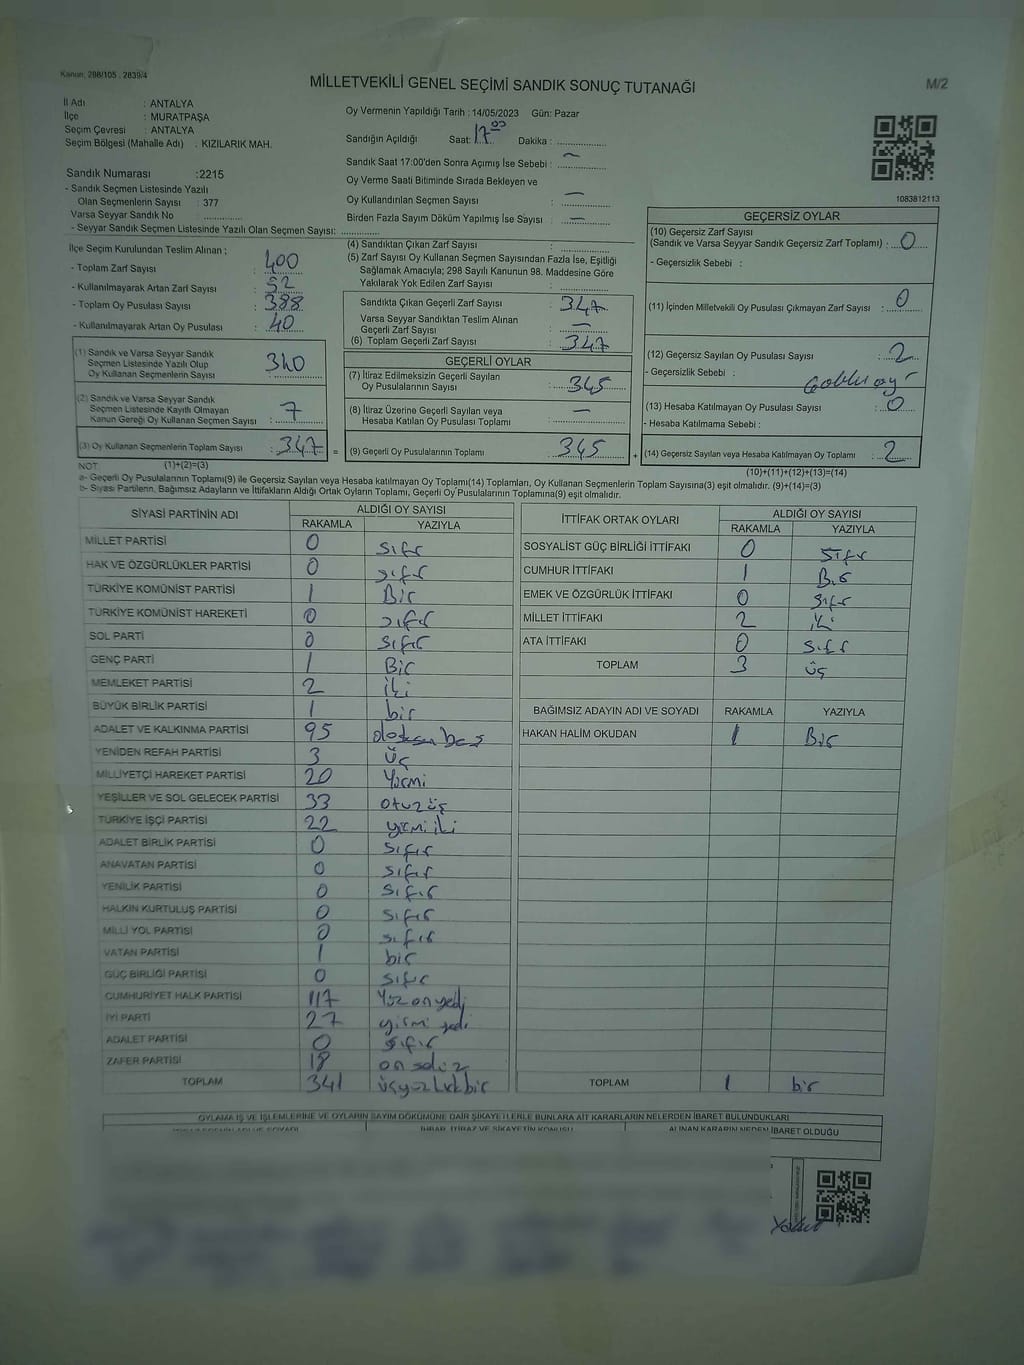 Kanun, 298/105 , 2839/4
MİLLETVEKİLİ GENEL SEÇİMİ SANDIK SONUÇ TUTANAĞI
M/2
İl Adı : ANTALYA
İlçe : MURATPAŞA
Seçim Çevresi : ANTALYA
Seçim Bölgesi (Mahalle Adı) . KIZILARIK MAH.
Sandık Numarası :2215
- Sandık Seçmen Listesinde Yazılı
Olan Seçmenlerin Sayısı : 377
Varsa Seyyar Sandık No : ............
- Seyyar Sandık Seçmen Listesinde Yazılı Olan Seçmen Sayısı: ............
Oy Vermenin Yapıldığı Tarih : 14/05/2023 Gün: Pazar
Sandığın Açıldığı Saat: 17 00 Dakika : ............
Sandık Saat 17:00'den Sonra Açımış İse Sebebi : —
Oy Verme Saati Bitiminde Sırada Bekleyen ve
Oy Kullandırılan Seçmen Sayısı : —
Birden Fazla Sayım Döküm Yapılmış İse Sayısı : —
1083812113
İlçe Seçim Kurulundan Teslim Alınan ;
- Toplam Zarf Sayısı : 400
- Kullanılmayarak Artan Zarf Sayısı : 52
- Toplam Oy Pusulası Sayısı : 388
- Kullanılmayarak Artan Oy Pusulası : 40
(1) Sandık ve Varsa Seyyar Sandık
Seçmen Listesinde Yazılı Olup
Oy Kullanan Seçmenlerin Sayısı : 340
(2) Sandık ve Varsa Seyyar Sandık
Seçmen Listesinde Kayıtlı Olmayan
Kanun Gereği Oy Kullanan Seçmen Sayısı : 7
(3) Oy Kullanan Seçmenlerin Toplam Sayısı : 347 =
(4) Sandıktan Çıkan Zarf Sayısı : ............
(5) Zarf Sayısı Oy Kullanan Seçmen Sayısından Fazla İse, Eşitliği
Sağlamak Amacıyla; 298 Sayılı Kanunun 98. Maddesine Göre
Yakılarak Yok Edilen Zarf Sayısı : ............
Sandıkta Çıkan Geçerli Zarf Sayısı : 347
Varsa Seyyar Sandıktan Teslim Alınan
Geçerli Zarf Sayısı : —
(6) Toplam Geçerli Zarf Sayısı : 347
GEÇERLİ OYLAR
(7) İtiraz Edilmeksizin Geçerli Sayılan
Oy Pusulalarının Sayısı : 345
(8) İtiraz Üzerine Geçerli Sayılan veya
Hesaba Katılan Oy Pusulaları Toplamı : —
(9) Geçerli Oy Pusulalarının Toplamı : 345 +
GEÇERSİZ OYLAR
(10) Geçersiz Zarf Sayısı
(Sandık ve Varsa Seyyar Sandık Geçersiz Zarf Toplamı) : 0
- Geçersizlik Sebebi :
(11) İçinden Milletvekili Oy Pusulası Çıkmayan Zarf Sayısı : 0
(12) Geçersiz Sayılan Oy Pusulası Sayısı : 2
- Geçersizlik Sebebi :
(13) Hesaba Katılmayan Oy Pusulası Sayısı : 0
- Hesaba Katılmama Sebebi :
(14) Geçersiz Sayılan veya Hesaba Katılmayan Oy Toplamı : 2
NOT (1)+(2)=(3)
(10)+(11)+(12)+(13)=(14)
a- Geçerli Oy Pusulalarının Toplamı(9) ile Geçersiz Sayılan veya Hesaba Katılmayan Oy Toplamı(14) Toplamları, Oy Kullanan Seçmenlerin Toplam Sayısına(3) eşit olmalıdır. (9)+(14)=(3)
b- Siyasi Partilerin, Bağımsız Adayların ve İttifakların Aldığı Ortak Oyların Toplamı, Geçerli Oy Pusulalarının Toplamına(9) eşit olmalıdır.
SİYASİ PARTİNİN ADI ALDIĞI OY SAYISI
RAKAMLA YAZIYLA
MİLLET PARTİSİ 0 sıfır
HAK VE ÖZGÜRLÜKLER PARTİSİ 0 sıfır
TÜRKİYE KOMÜNİST PARTİSİ 1 Bir
TÜRKİYE KOMÜNİST HAREKETİ 0 sıfır
SOL PARTİ 0 sıfır
GENÇ PARTİ 1 Bir
MEMLEKET PARTİSİ 2 iki
BÜYÜK BİRLİK PARTİSİ 1 bir
ADALET VE KALKINMA PARTİSİ 95 doksan beş
YENİDEN REFAH PARTİSİ 3 üç
MİLLİYETÇİ HAREKET PARTİSİ 20 Yirmi
YEŞİLLER VE SOL GELECEK PARTİSİ 33 otuz üç
TÜRKİYE İŞÇİ PARTİSİ 22 yirmi iki
ADALET BİRLİK PARTİSİ 0 sıfır
ANAVATAN PARTİSİ 0 sıfır
YENİLİK PARTİSİ 0 sıfır
HALKIN KURTULUŞ PARTİSİ 0 sıfır
MİLLİ YOL PARTİSİ 0 sıfır
VATAN PARTİSİ 1 bir
GÜÇ BİRLİĞİ PARTİSİ 0 sıfır
CUMHURİYET HALK PARTİSİ 117 Yüz on yedi
İYİ PARTİ 27 yirmi yedi
ADALET PARTİSİ 0 sıfır
ZAFER PARTİSİ 18 on sekiz
TOPLAM 341 üçyüz kırk bir
İTTİFAK ORTAK OYLARI ALDIĞI OY SAYISI
RAKAMLA YAZIYLA
SOSYALİST GÜÇ BİRLİĞİ İTTİFAKI 0 sıfır
CUMHUR İTTİFAKI 1 Bir
EMEK VE ÖZGÜRLÜK İTTİFAKI 0 sıfır
MİLLET İTTİFAKI 2 iki
ATA İTTİFAKI 0 sıfır
TOPLAM 3 üç
BAĞIMSIZ ADAYIN ADI VE SOYADI RAKAMLA YAZIYLA
HAKAN HALİM OKUDAN 1 Bir
TOPLAM 1 bir
OYLAMA İŞ VE İŞLEMLERİNE VE OYLARIN SAYIM DÖKÜMÜNE DAİR ŞİKAYETLERLE BUNLARA AİT KARARLARIN NELERDEN İBARET BULUNDUKLARI
İHBAR, İTİRAZ VE ŞİKAYETİN KONUSU
ALINAN KARARIN NEDEN İBARET OLDUĞU